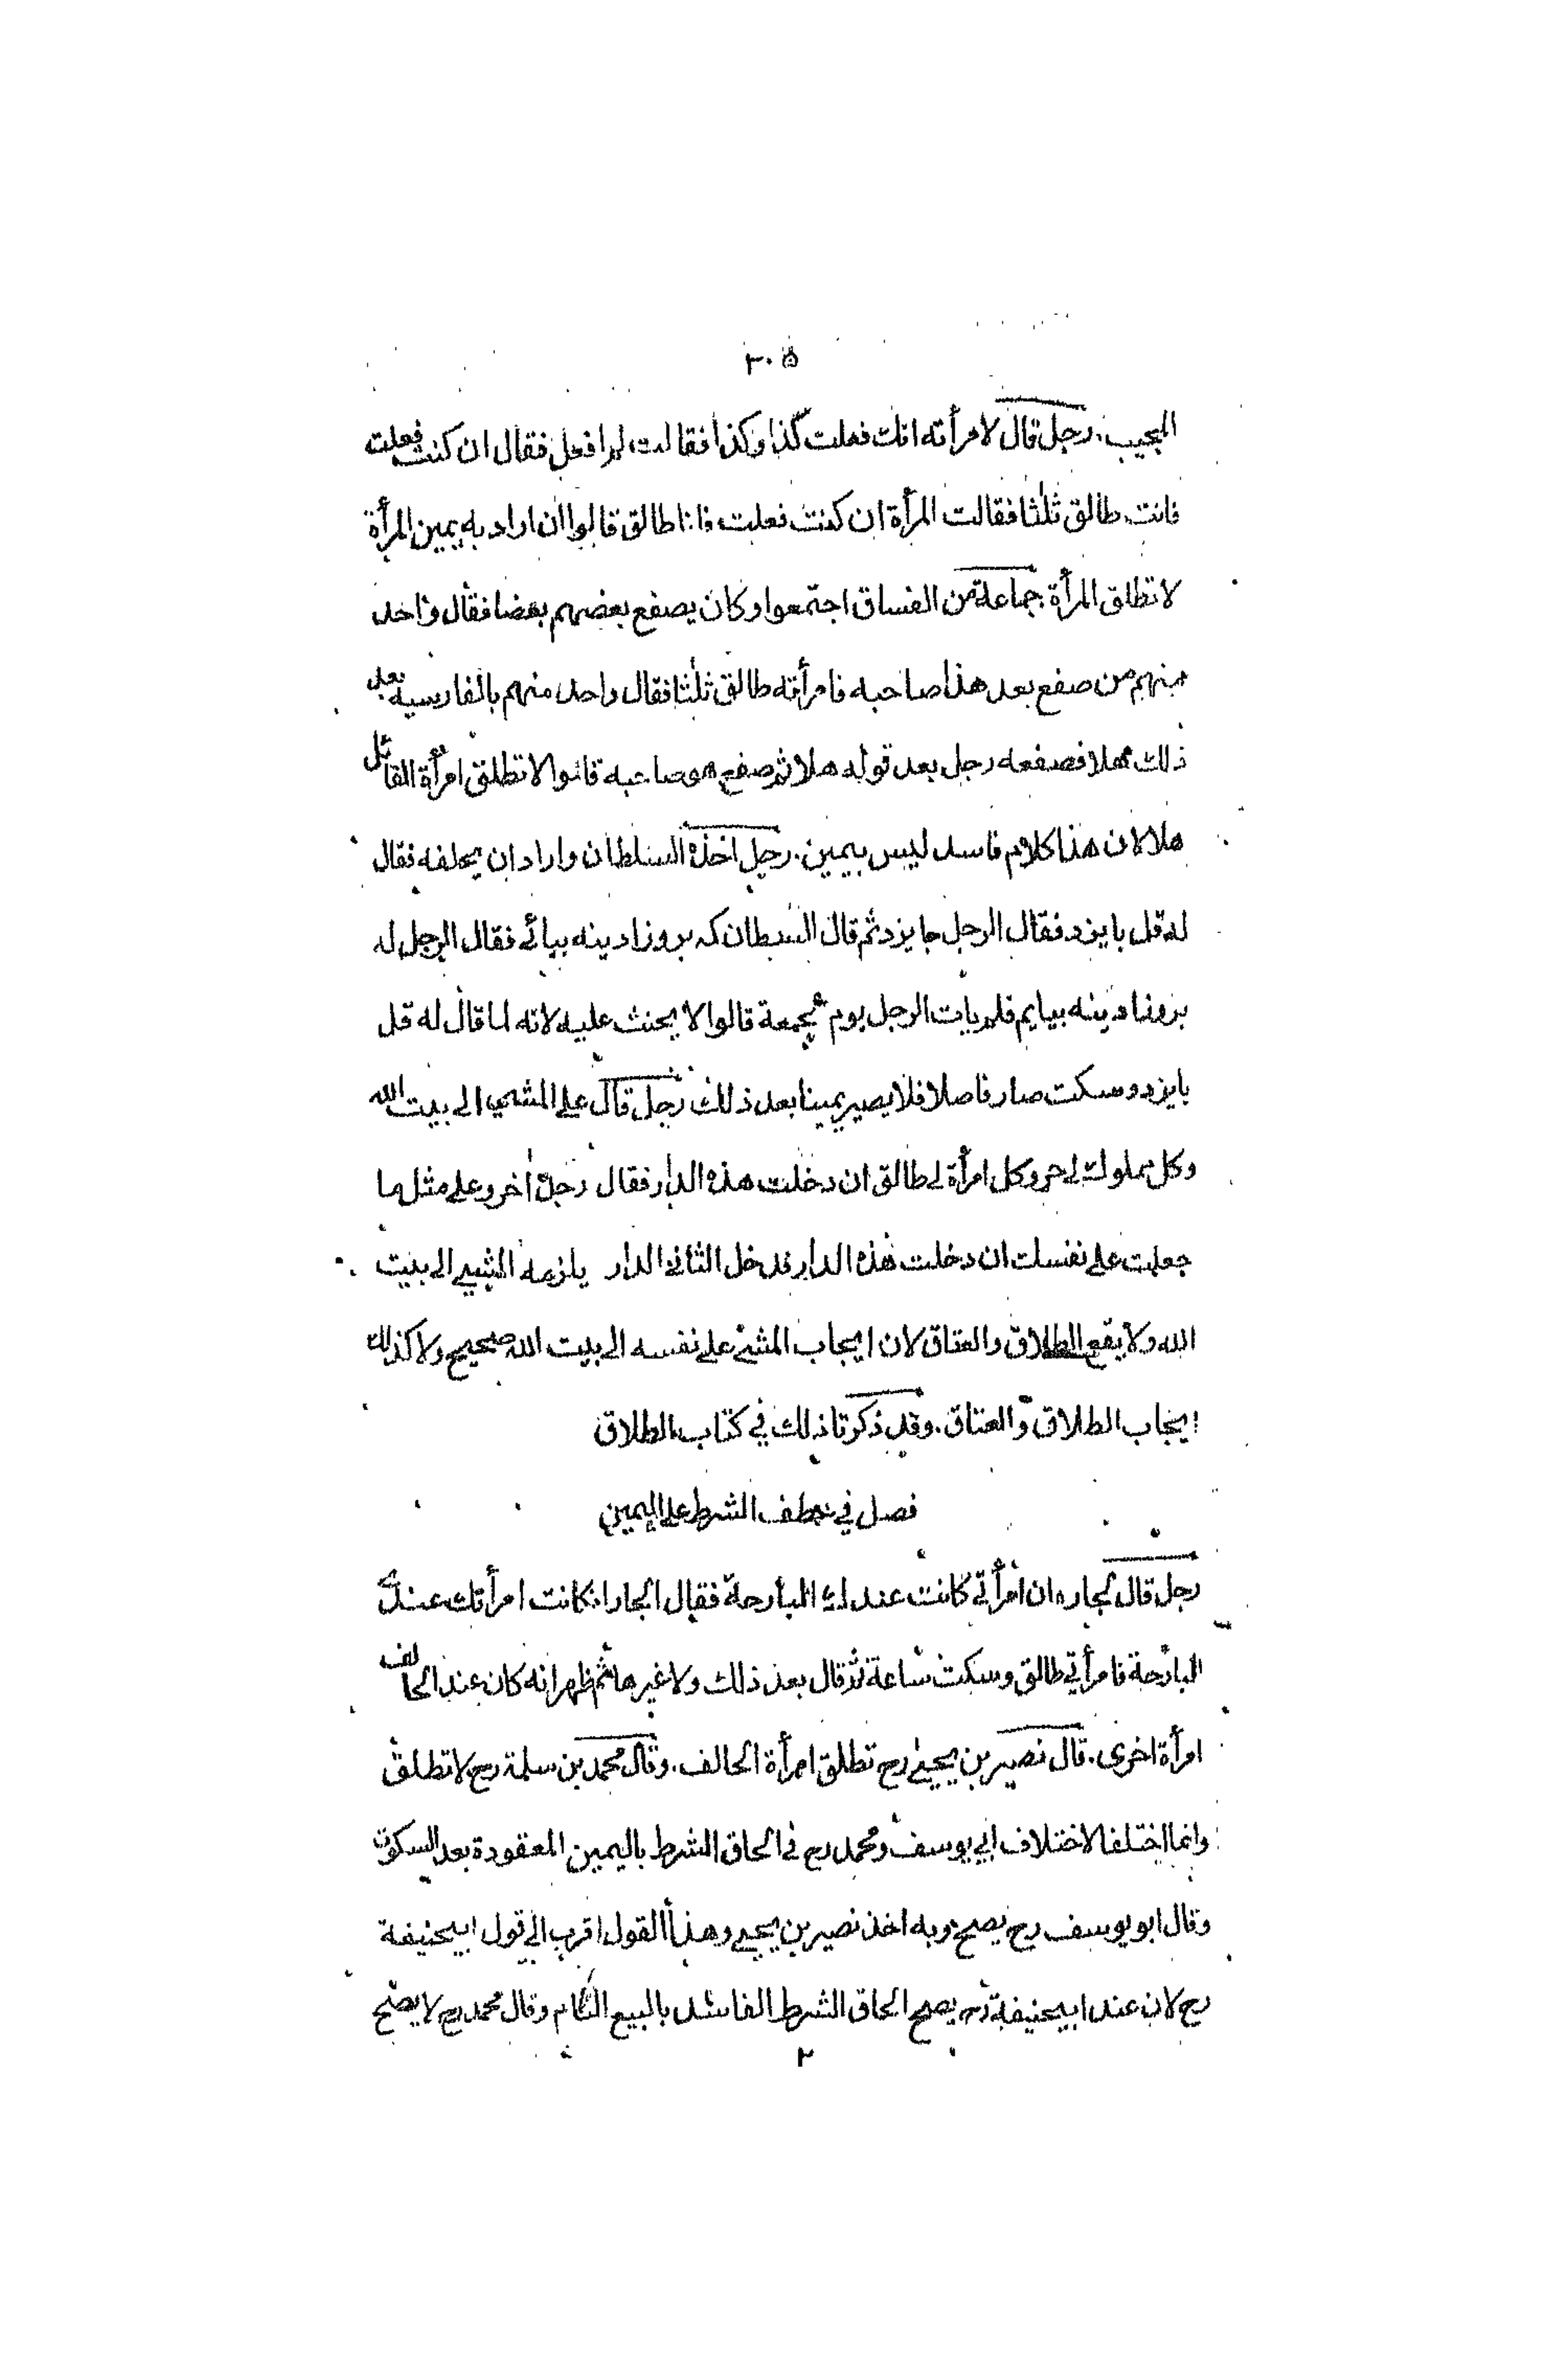 ٣٠٥
المجيب. رجل قال لامرأته انك فعلت كذا وكذا فقالت لم افعل فقال ان كنت فعلت
فانت طالق ثلثا فقالت المرأة ان كنت فعلت فانا طالق قالوا ان اراد به يمين المرأة
لا تطلق المرأة. جماعة من الفساق اجتمعوا وكان يصفع بعضهم بعضا فقال واحد
منهم من صفع بعد هذا صاحبه فامرأته طالق ثلثا فقال واحد منهم بالفارسية بعد
ذلك هلا فصفعه رجل بعد قوله هلا ثم صفع هو صاحبه قالوا لا تطلق امرأة القائل
هلا لان هذا كلام فاسد ليس بيمين. رجل اخذه السلطان واراد ان يحلفه فقال
له قل بايزد فقال الرجل بايزد ثم قال السلطان كه بروز ادينه بيائى فقال الرجل له
بروز ادينه بيايم فلم يأت الرجل يوم الجمعة قالوا لا يحنث عليه لانه لما قال له قل
بايزد وسكت صار فاصلا فلا يصير يمينا بعد ذلك رجل قال على المشي الى بيت الله
وكل مملوك لى حر وكل امرأة لى طالق ان دخلت هذه الدار فقال رجل آخر وعلى مثل ما
جعلت على نفسك ان دخلت هذه الدار فدخل الثانى الدار يلزمه المشي الى بيت
الله ولا يقع الطلاق والعتاق لان ايجاب المشي على نفسه الى بيت الله صحيح ولا كذلك
ايجاب الطلاق والعتاق. وقد ذكرنا ذلك في كتاب الطلاق
فصل في عطف الشرط على اليمين
رجل قال لجاره ان امرأتي كانت عندك البارحة فقال الجار ان كانت امرأتك عندى
البارحة فامرأتي طالق وسكت ساعة ثم قال بعد ذلك ولا غيرها ثم ظهر انه كان عند الحالف
امرأة اخرى. قال نصير بن يحيى رح تطلق امرأة الحالف. وقال محمد بن سلمة رح لا تطلق
وانما اختلفا لاختلاف ابي يوسف ومحمد رح في الحاق الشرط باليمين المعقودة بعد السكوت
وقال ابو يوسف رح يصح وبه اخذ نصير بن يحيى وهذا القول اقرب الى قول ابيحنيفة
رح لان عند ابيحنيفة رح يصح الحاق الشرط الفاسد بالبيع التام وقال محمد رح لا يصح
٢